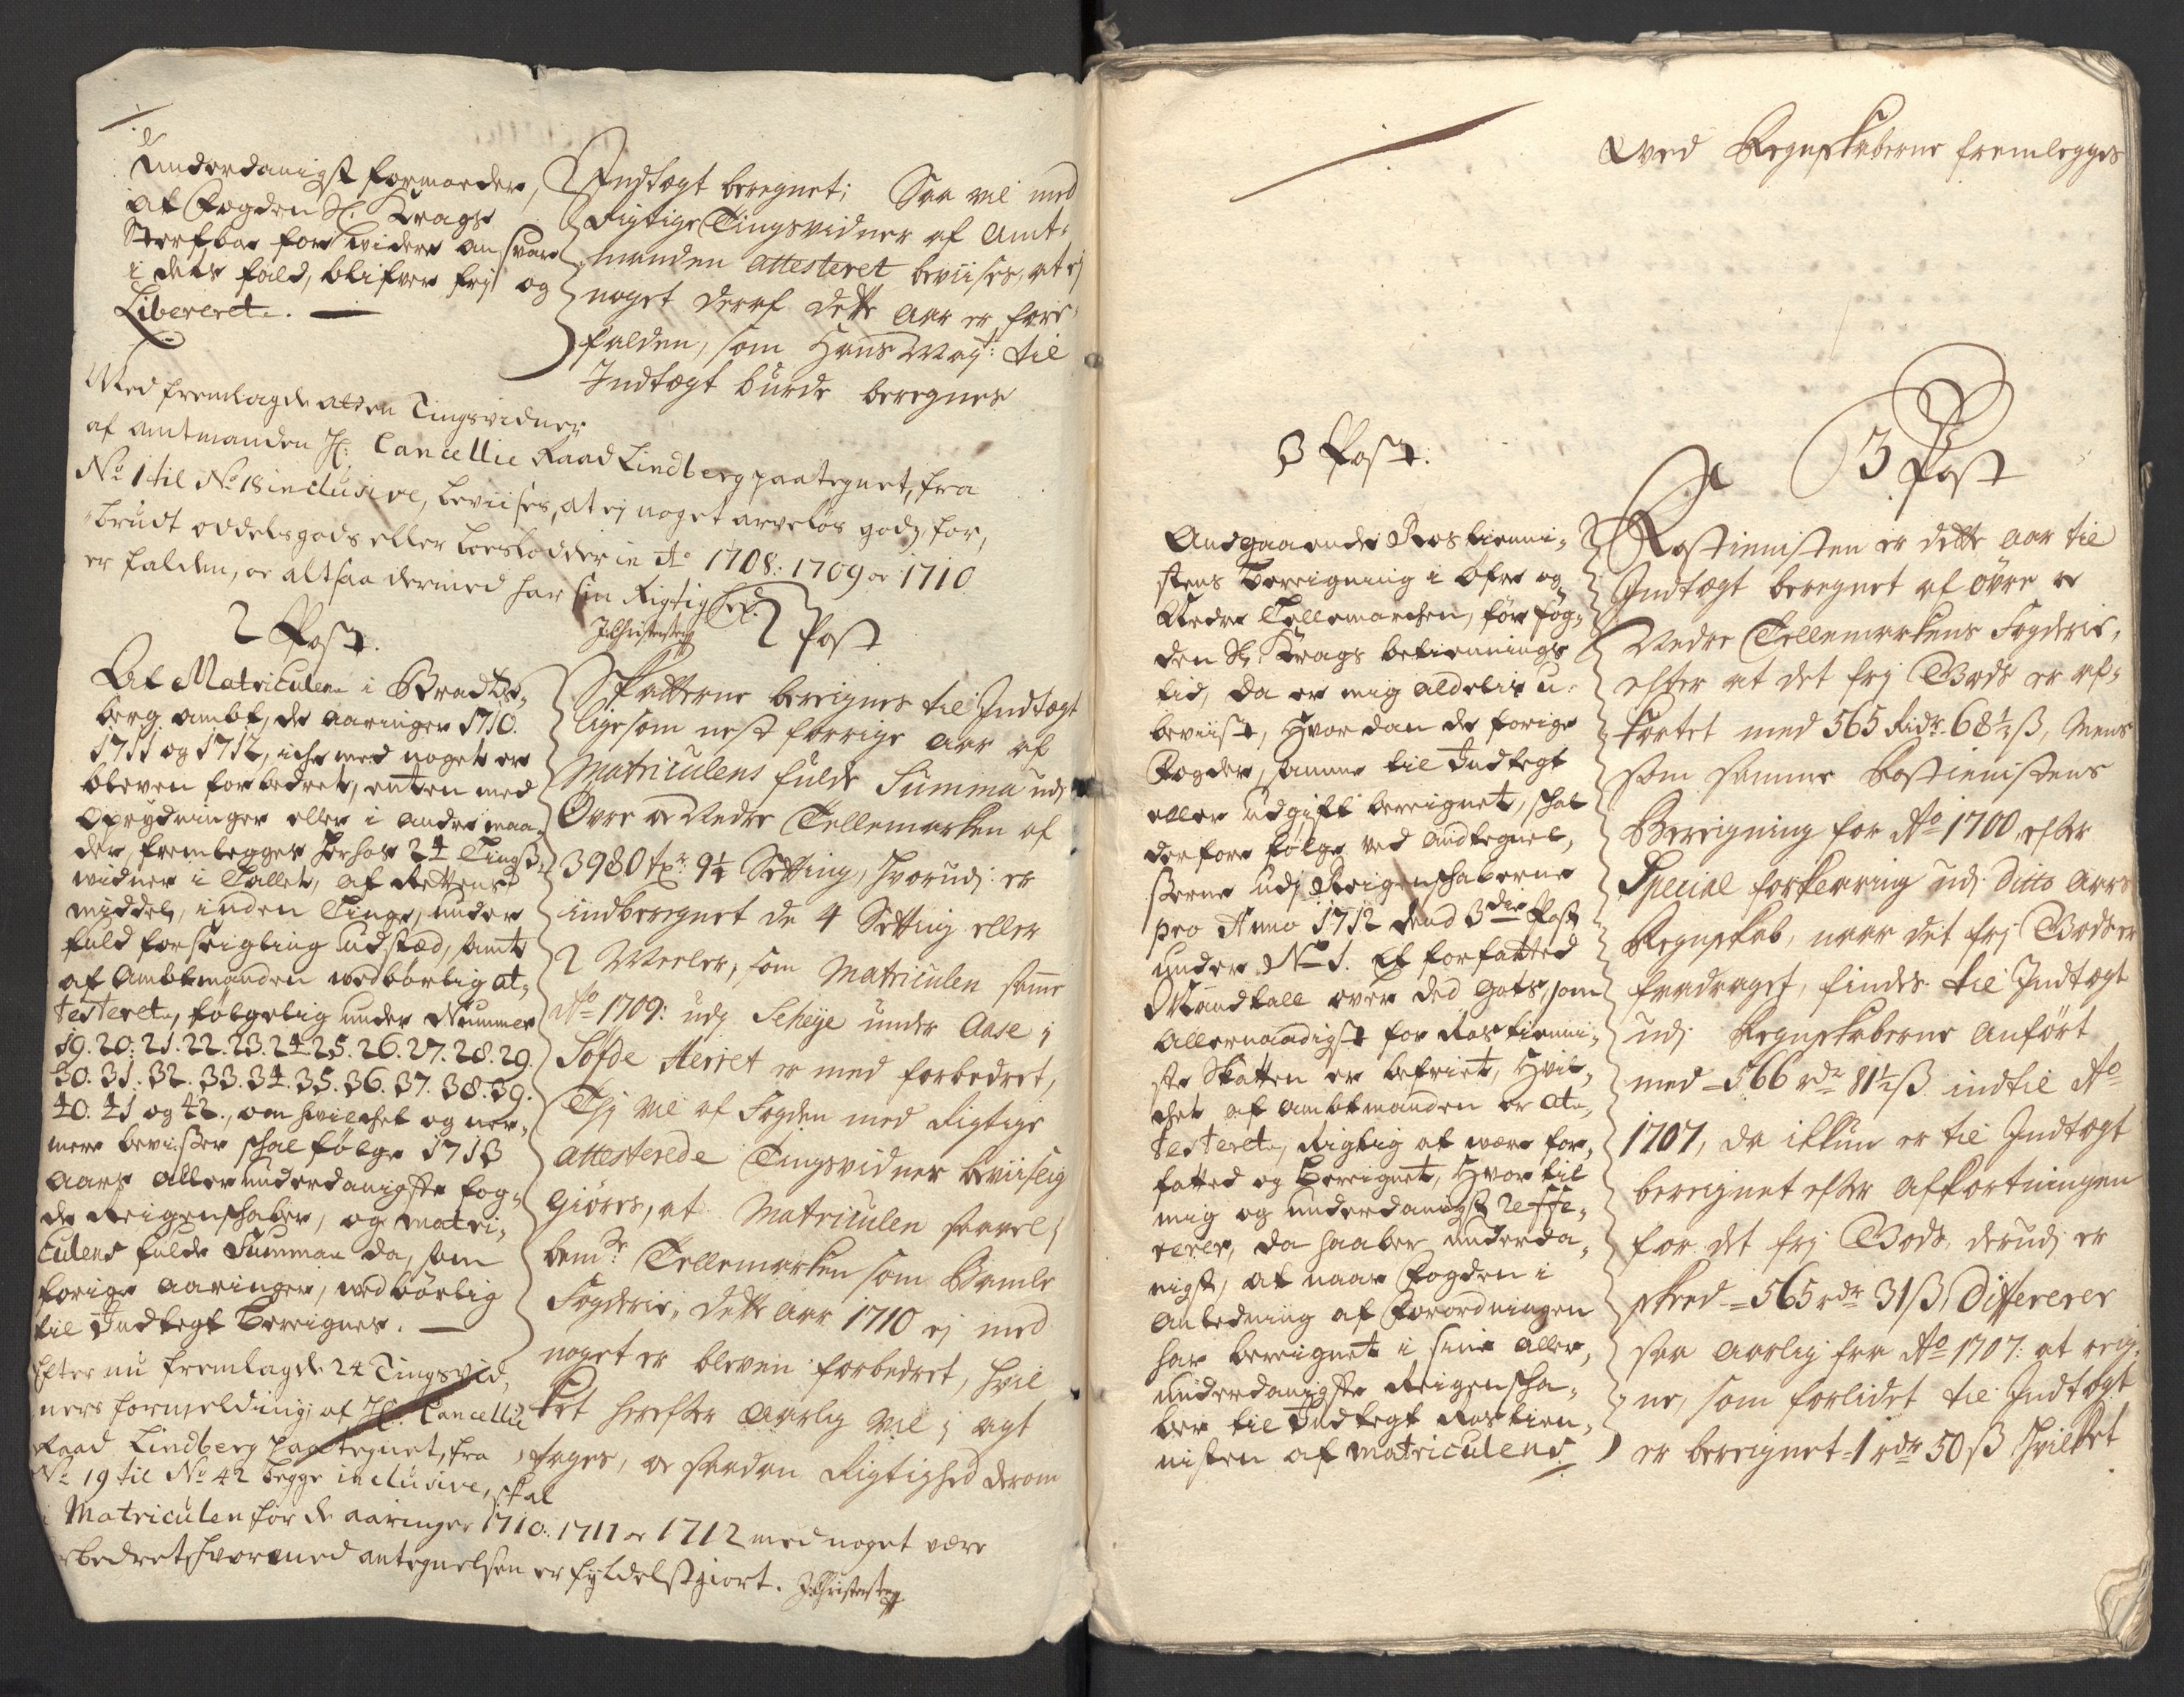 Underdanigst formoeder,
at Fogden Sl. Krags
Sterfboe for widere ansvare
i dets fald, blifver frj og
Libereret. —
Indtægt beregnet; Saa vil med
Rigtige Tingsvidner af Amt-
manden attesteret beviises, at ej
noget deraf dette Aar er fore-
falden, som Hans Mayt: til
Indtægt burde beregnes
Med fremlagde atten Tingsvidner
af amtmanden Hr: Cancellie Raad Lindberg paategnet, fra
No 1 til No 18 inclusive, beviises, at ej noget arveløs godz, for,
brudt oddelsgods eller Leeslodder in Ao 1708. 1709 oc 1710
er falden, oc altsaa dermed har sin Rigtighed.
2 Post.
At Matriculen i Bradtz-
berg ambt, de aaringer 1710.
1711 og 1712, iche med noget er
bleven forbedret, enten med
Oprydninger eller i andre maa-
der, fremlegges herhos 24 Tings-
widner i Tallet, af Rettens
middel, inden Tinge, under
fuld forseigling udsted, samt
af Ambtmanden wedbørlig at-
testeret, følgelig under Nummer
19. 20. 21. 22. 23. 24. 25. 26. 27. 28. 29.
30. 31. 32. 33. 34. 35. 36. 37. 38. 39.
40. 41 og 42., om hvilchet og ner-
mere beviser schal følge 1713
Aars allerunderdanigste Fog-
de Reigenschaber, og matri-
culens fulde Summa da, som
forige aaringer, wedbørlig
til Indtegt Bereignes. —
Efter nu fremlagde 24 Tingsvid,
ners formelding, af Hr: Cancellie
Raad Lindberg paategnet, fra
No 19 til No 42 begge inclusive, skal
Matriculen for de aaringer 1710. 1711 oc 1712 med noget være
bedret, hvormed antegnelsen er fyldestgiort. JChristensen
2 Post
Skatterne bereignes til Indtægt
ligesom nest forrige Aar af
Matriculens fulde Summa udj
Øvre oc Nedre Tellemarken af
3980 tr. 9¼ Setting, hvorudj er
indberegnet de 4 Setting eller
2 Meeler, som Matriculen samme
Ao 1709: udj Scheje under Aase i
Sofde Herret er med forbedret,
Thj vil af Fogden med Rigtige
attesterede Tingsvidner beviislig
giøres, at Matriculen saavel i
bemte Tellemarken som Bamle
Fogderie, dette Aar 1710 ej med
noget er bleven forbedret, hvil
ket herefter Aarlig vil i agt
tages, oc saadan Rigtighed derom
ved Regnskaberne fremlegges
3 Post.
Andgaaende Rostienni-
stens Bereigning i Øfre og
Nedre Tellemarchen, før Fog-
den Sl. Krags betiennings
tid, da er mig aldelis u-
beviist, hvordan de forige
Fogder, samme til Indtegt
eller udgift bereignet, schal
derfore følge ved Andtegnel-
serne udj Reigenschaberne
pro Anno 1712 dend 3die Post
under No 1. Et forfatted
Mandtall over ded gots, som
Allernaadigst for Rostienni-
ste Skatten er befriet, hvil-
chet af Ambtmanden er at-
testeret, Rigtig at were for-
fatted og Bereignet, Hvortil
mig og underdanigst reffe-
rerer, da haaber underda-
nigst, at naar Fogden i
Anledning af Forordningen
har bereignet i sine aller-
underdanigste Reigenscha-
ber til Indtegt Rostien-
nisten af matriculens
3 Post
Rostienisten er dette Aar til
Indtægt beregnet af Øvre oc
Nedre Tellemarkens Fogderie,
efter at det frj Gods er af-
kortet med 565 Ridr. 68½ ß, Mens
som samme Rostienistens
Bereigning for Ao 1700, efter
Special forklaring udj ditto Aars
Regnskab, naar det frj Gods er
fradraget, findes til Indtægt
udj Regnskaberne anført
med – 566 rdr 81½ ß indtil Ao
1707, da ikkun er til Indtægt
bereignet efter afkortningen
for det frj Gods, derudj er
skeed = 565 rdr 31 ß, Differerer
saa Aarlig fra Ao 1707: at reig-
ne, som forlidet til Indtægt
er bereignet = 1 rdr 50 ß hvilket